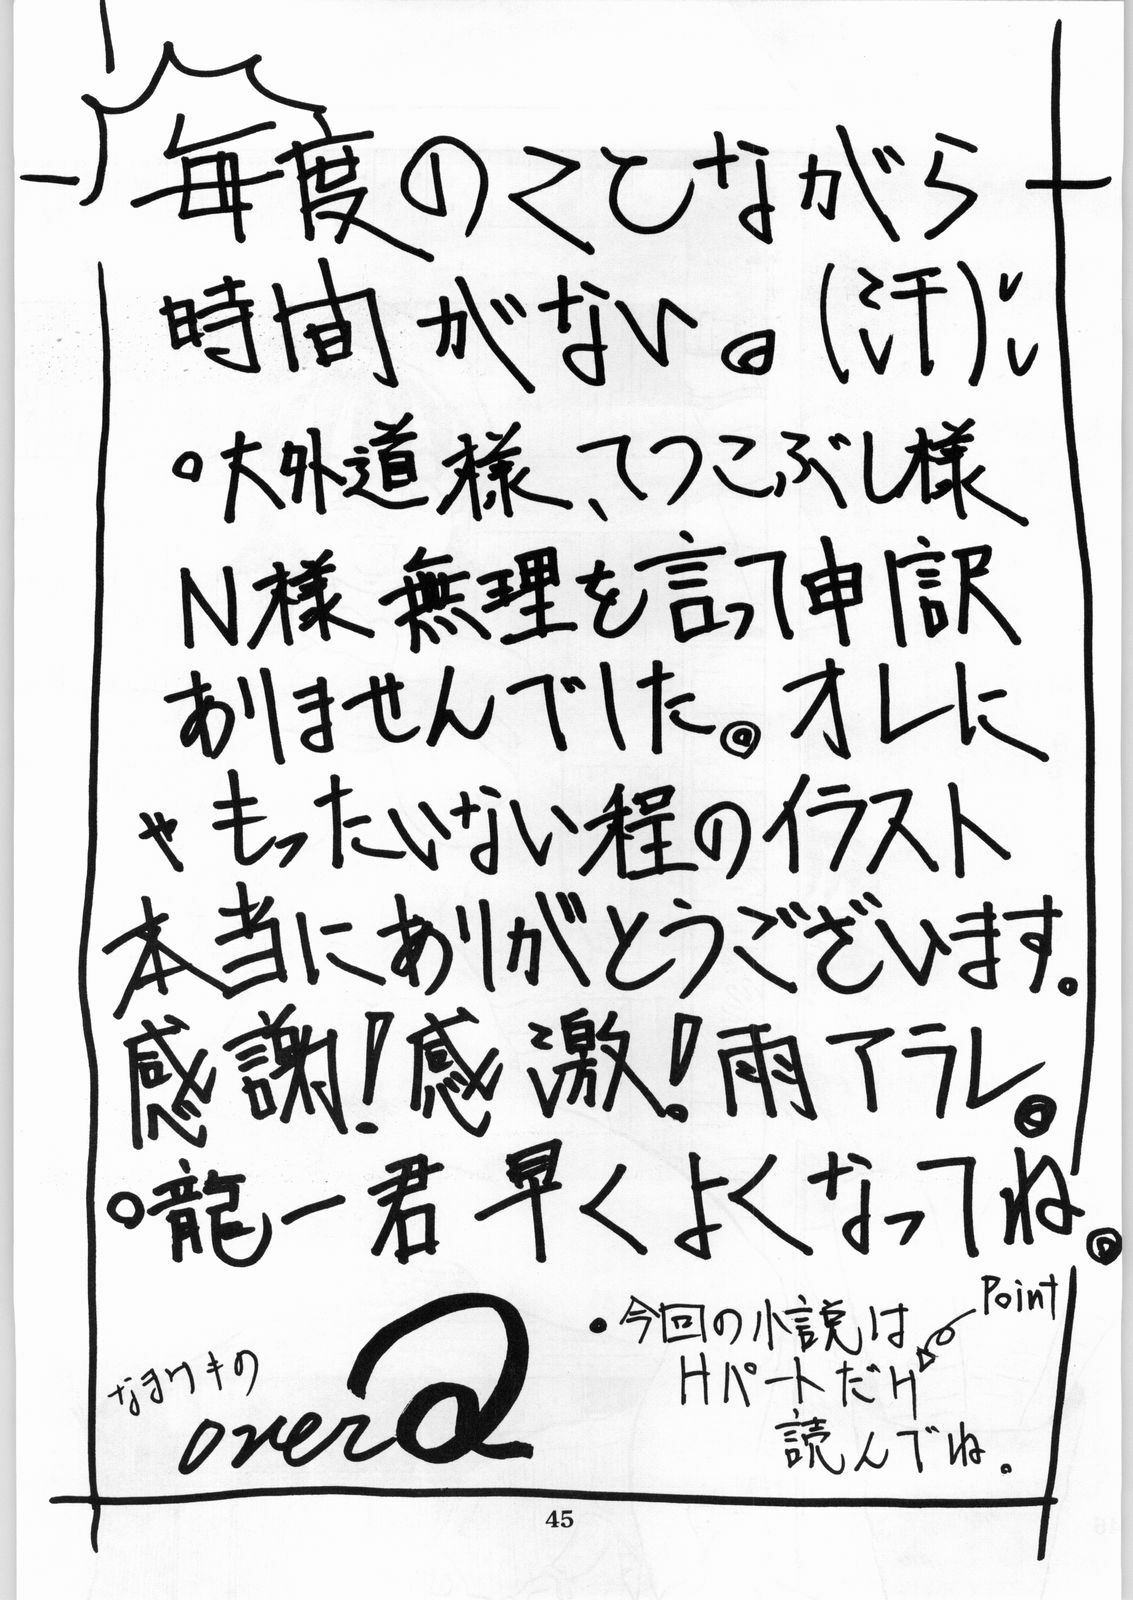 毎度のことながら
時間がない。(汗)
○大外道様、てつこぶし様
N様 無理を言って申し訳
ありませんでした。オレに
ゃもったいない程のイラスト
本当にありがとうございます。
感謝!感激!雨アラレ。
○龍一君 早くよくなってね。
なまけもの
overQ
Point
・今回の小説は
Hパートだけ
読んでね。
45